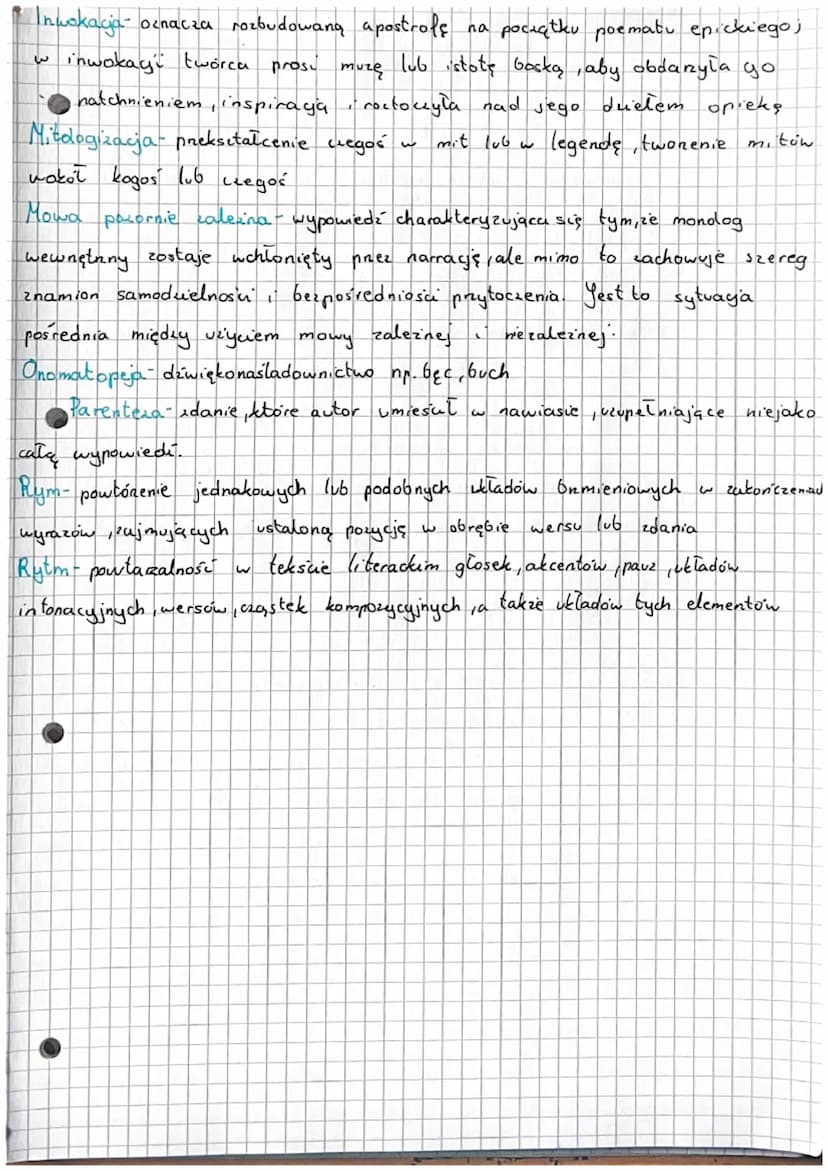 Inwokacja- oznacza rozbudowaną apostrofę na początku poematu epickiego;
w inwokacji twórca prosi muzę lub istotę boską, aby obdarzyła go
natchnieniem, inspiracją i roztoczyła nad jego dziełem opiekę
Mitologizacja- przekształcenie czegoś w mit lub w legendę, tworzenie mitów
wokół kogoś lub czegoś
Mowa pozornie zależna- wypowiedź charakteryzująca się tym, że monolog
wewnętrzny zostaje wchłonięty przez narrację, ale mimo to zachowuje szereg
znamion samodzielności i bezpośredniości przytoczenia. Jest to sytuacja
pośrednia między użyciem mowy zależnej i niezależnej.
Onomatopeja- dźwiękonaśladownictwo np. bęc, buch
Parenteza- zdanie, które autor umieścił w nawiasie, uzupełniające niejako
całą wypowiedź.
Rym- powtórzenie jednakowych lub podobnych układów brzmieniowych w zakończeniach
wyrazów, zajmujących ustaloną pozycję w obrębie wersu lub zdania
Rytm- powtarzalność w tekście literackim głosek, akcentów, pauz, układów
intonacyjnych, wersów, cząstek kompozycyjnych, a także układów tych elementów